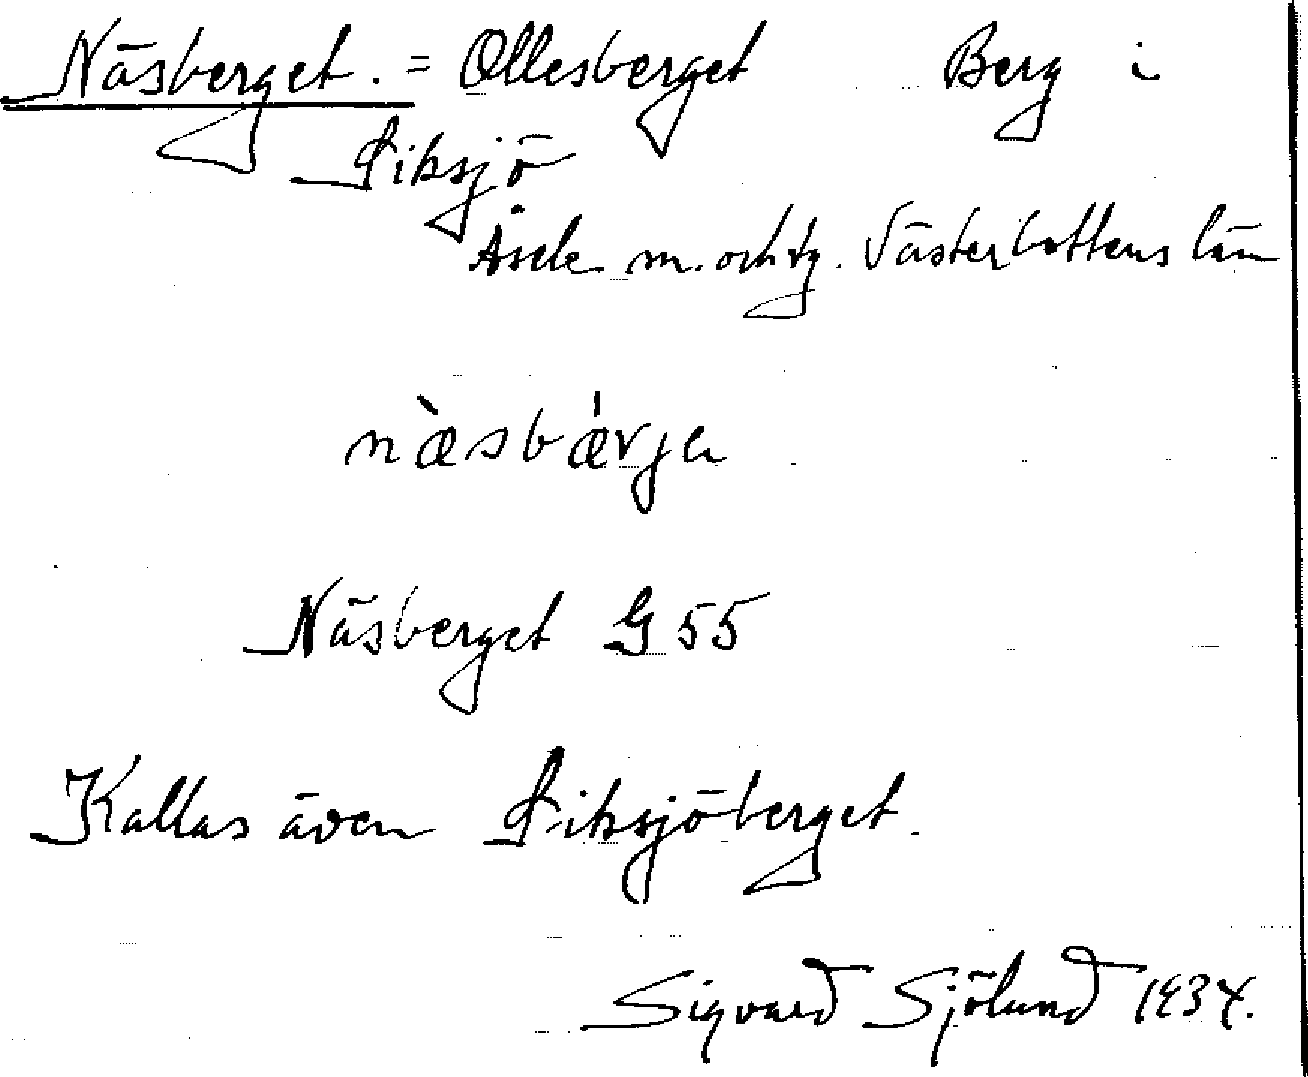 Näsberget. = Ollesberget Berg i
Siksjö
Åsele m. och tg. Västerbottens län
nàsbǽrjen
Näsberget G 55
Kallas även Siksjöberget.
Sigvard Sjölund 1934.